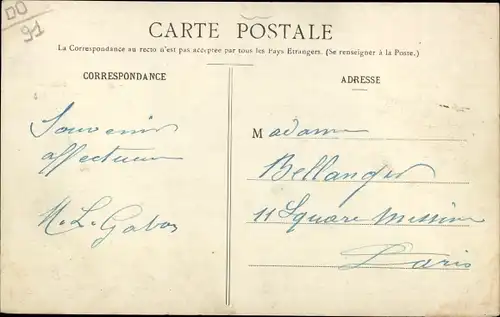 DO
91
CARTE POSTALE
La Correspondance au recto n'est pas acceptée par tous les Pays Etrangers. (Se renseigner à la Poste.)
CORRESPONDANCE
Souvenir
affectueux
M. L. Gabos
ADRESSE
Madame
Bellanger
11 Square Messine
Paris